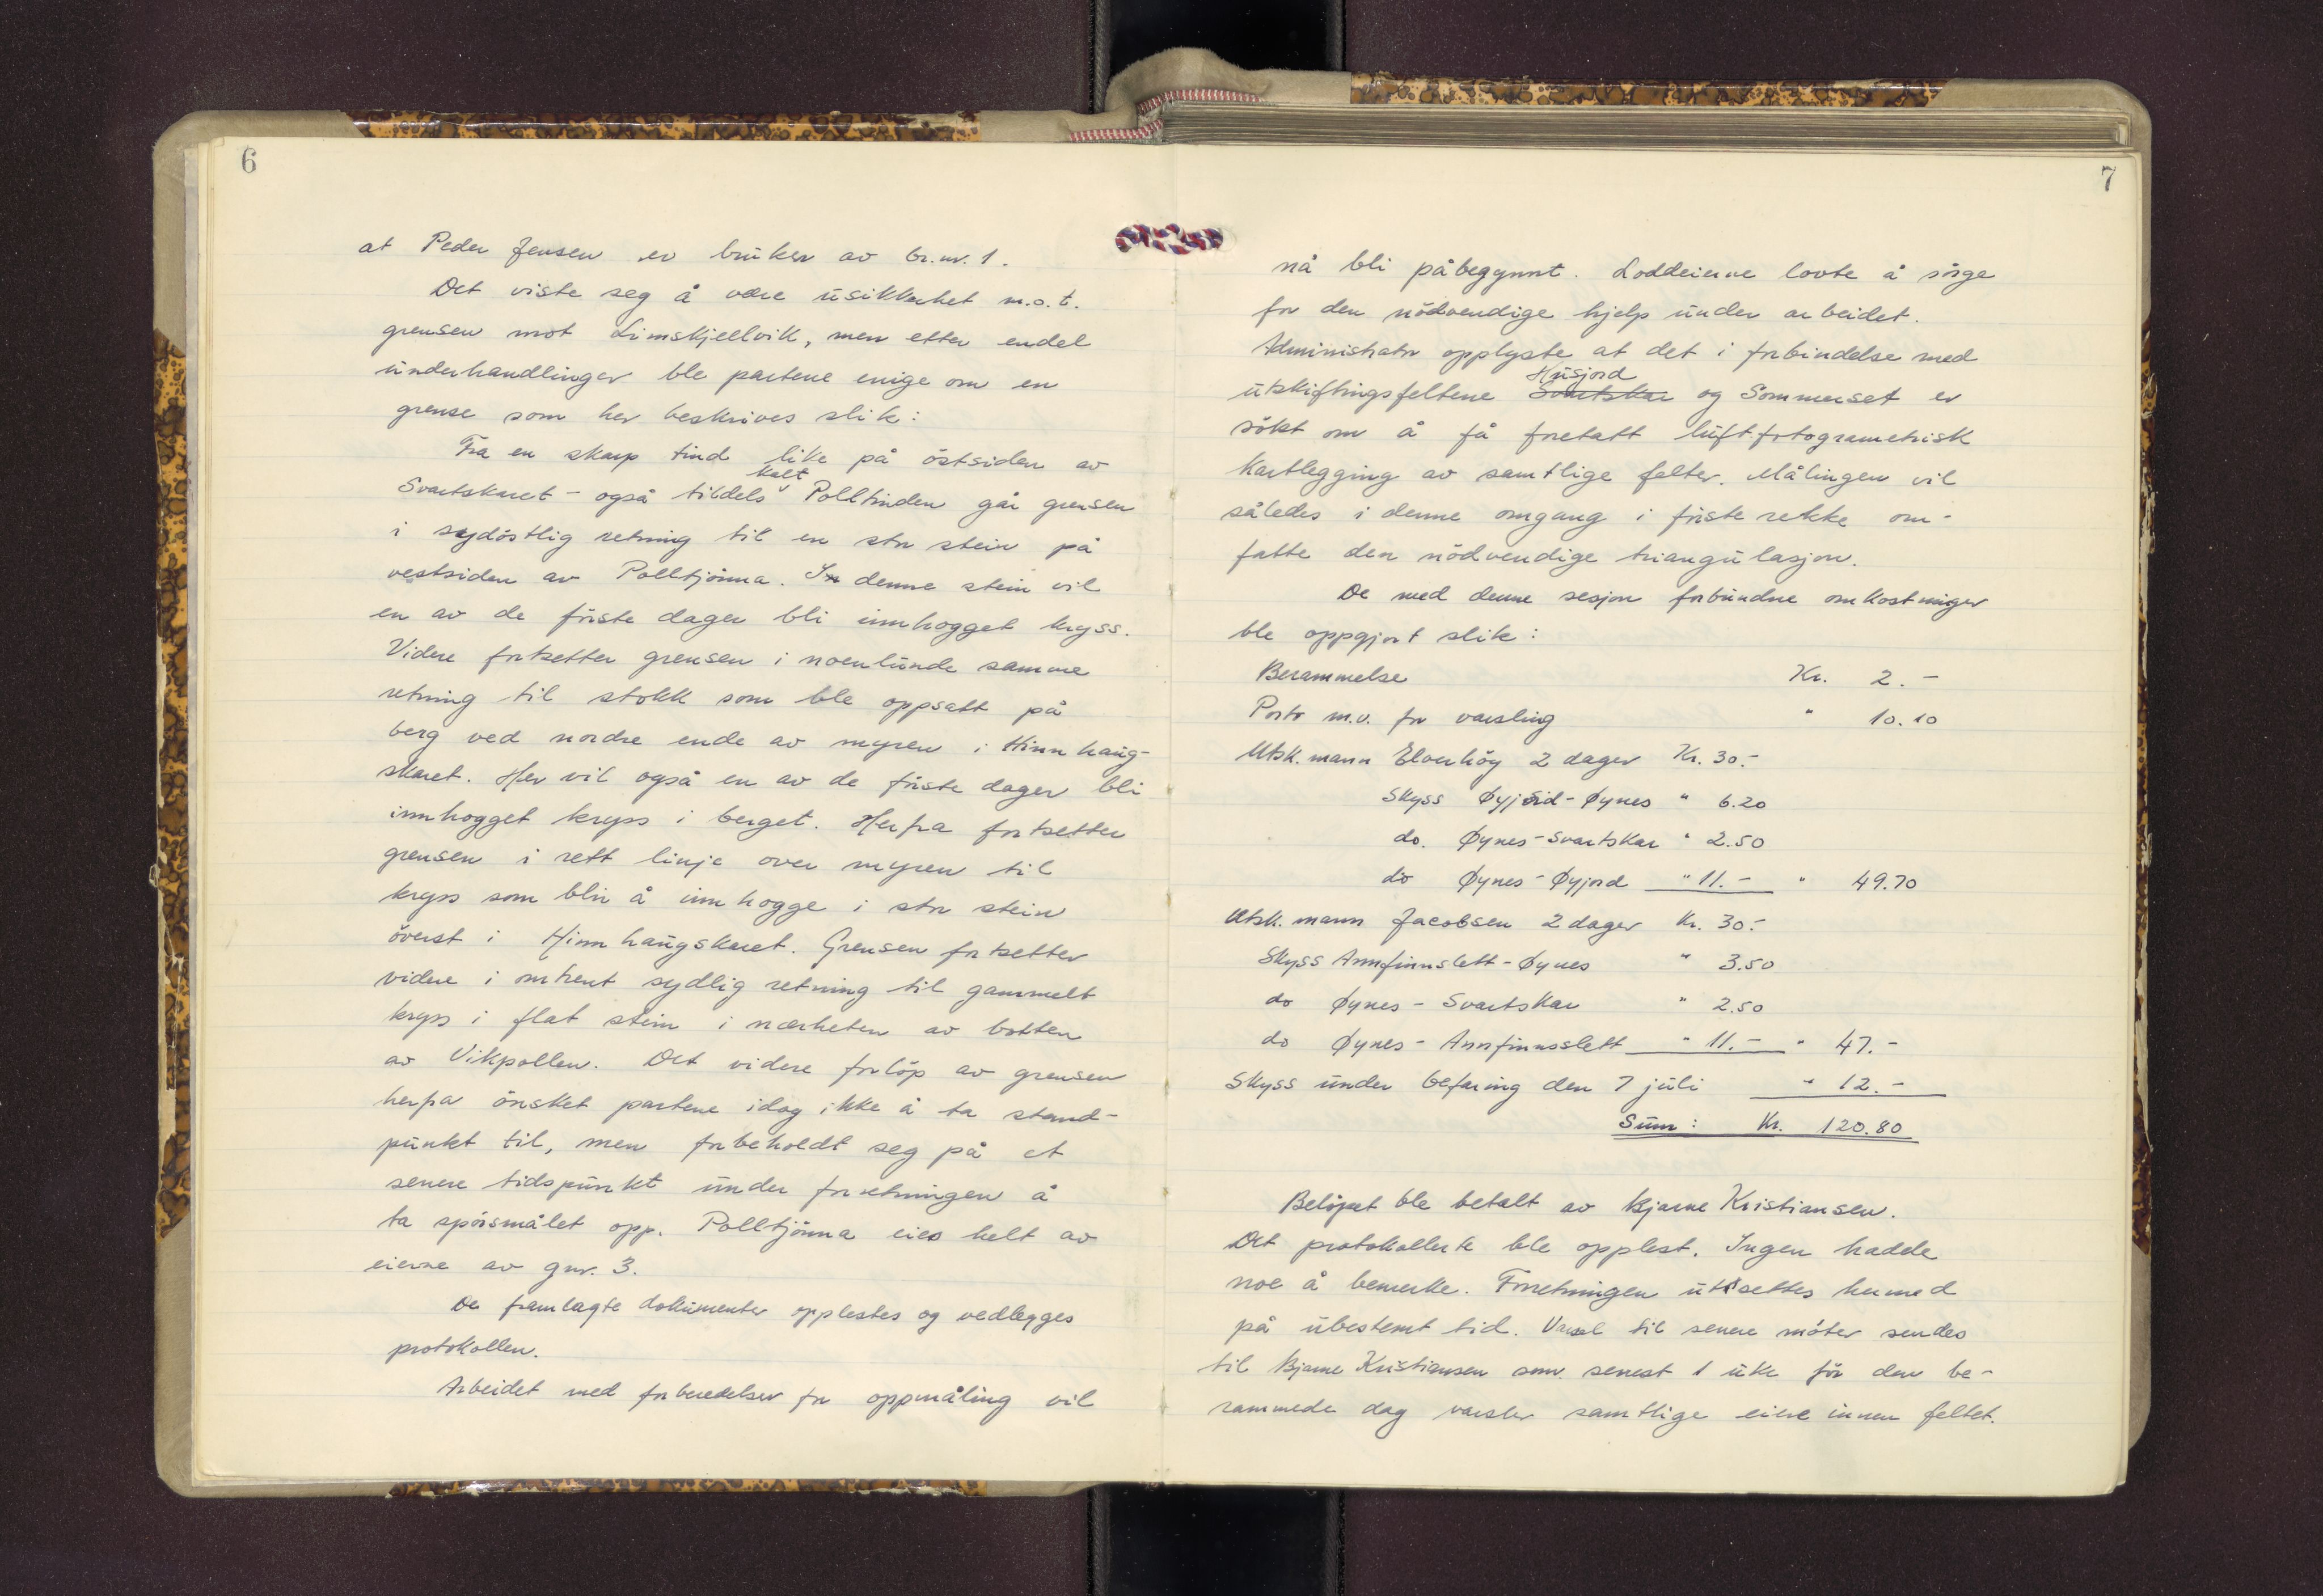 6
at Peder Jensen er bruker av br.nr. 1.
Det viste seg å være usikkerhet m.o.t.
grensen mot Limskjellvik, men etter endel
underhandlinger ble partene enige om en
grense som her beskrives slik:
Fra en skarp tind like på östsiden av
Svartskaret - også tildels kalt Polltinden går grensen
i sydöstlig retning til en stor stein på
vestsiden av Polltjönna. I denne stein vil
en av de förste dager bli innhogget kryss.
Videre fortsetter grensen i noenlunde samme
retning til stokk som ble oppsatt på
berg ved nordre ende av myren i Hinnhaug-
skaret. Her vil også en av de förste dager bli
innhogget kryss i berget. Herfra fortsetter
grensen i rett linje over myren til
kryss som blir å innhogge i stor stein
överst i Hinnhaugskaret. Grensen fortsetter
videre i omtrent sydlig retning til gammelt
kryss i flat stein i nærheten av botten
av Vikpollen. Det videre forlöp av grensen
herfra önsket partene idag ikke å ta stand-
punkt til, men forbeholdt seg på et
senere tidspunkt under forretningen å
ta spörsmålet opp. Polltjönna eies helt av
eierne av gnr. 3.
De framlagte dokumenter opplestes og vedlegges
protokollen.
Arbeidet med forberedelser for oppmåling vil
7
nå bli påbegynnt. Loddeierne lovte å sörge
for den nödvendige hjelp under arbeidet.
Administrator opplyste at det i forbindelse med
utskiftingsfeltene Svartskar Husjord og Sommerset er
sökt om å få foretatt luftfotogrametrisk
kartlegging av samtlige felter. Målingen vil
således i denne omgang i förste rekke om-
fatte den nödvendige triangulasjon.
De med denne sesjon forbundne omkostninger
ble oppgjort slik:
Berammelse Kr. 2.-
Porto m.v. for varsling " 10.10
Utsk.mann Elverhöy 2 dager Kr. 30.-
Skyss Øyjord - Øynes " 6.20
do. Øynes - Svartskar " 2.50
do Øynes - Øyjord " 11.- " 49.70
Utsk.mann Jacobsen 2 dager Kr. 30.-
Skyss Arnfinnslett - Øynes " 3.50
do Øynes - Svartskar " 2.50
do Øynes - Arnfinnsslett " 11.- " 47.-
Skyss under befaring den 7 juli " 12.-
Sum: Kr. 120.80
Belöpet ble betalt av Bjarne Kristiansen.
Det protokollerte ble opplest. Ingen hadde
noe å bemerke. Forretningen utsettes hermed
på ubestemt tid. Varsel til senere möter sendes
til Bjarne Kristiansen som senest 1 uke för den be-
rammede dag varsler samtlige eiere innen feltet.